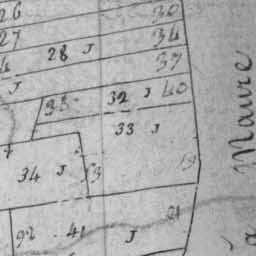 26 30
27 34
28 J 37
4
J
38 32 J 40
33 J
34 J 13
19
21
92 41 J
Maure
à